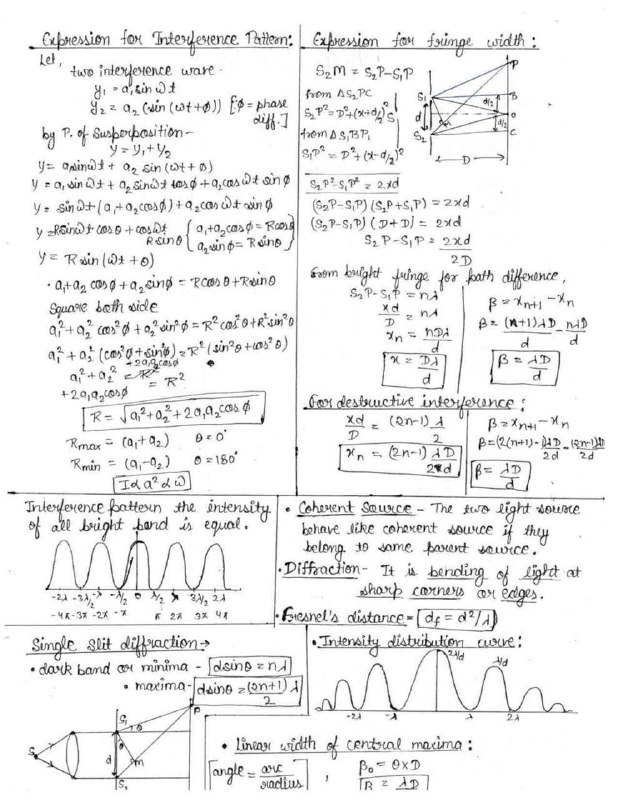 Expression for Interference Pattern:
Let,
two interference wave -
y₁ = a₁ sin ωt
y₂ = a₂ (sin (ωt + ϕ)) [∵ ϕ = phase diff.]
by P. of Susperposition -
y = y₁ + y₂
y = a₁ sin ωt + a₂ sin (ωt + ϕ)
y = a₁ sin ωt + a₂ sin ωt cos ϕ + a₂ cos ωt sin ϕ
y = sin ωt (a₁ + a₂ cos ϕ) + a₂ cos ωt sin ϕ
y = R sin ωt cos θ + cos ωt R sin θ { a₁ + a₂ cos ϕ = R cos θ
a₂ sin ϕ = R sin θ }
y = R sin (ωt + θ)
• a₁ + a₂ cos ϕ + a₂ sin ϕ = R cos θ + R sin θ
Square both side
a₁² + a₂² cos² ϕ + a₂² sin² ϕ = R² cos² θ + R² sin² θ
a₁² + a₂² (cos² ϕ + sin² ϕ) = R² (sin² θ + cos² θ)
+ 2a₁a₂cosϕ
a₁² + a₂² = R²
+ 2a₁a₂cosϕ
R = √a₁² + a₂² + 2a₁a₂ cos ϕ
Rmax = (a₁ + a₂) θ = 0°
Rmin = (a₁ - a₂) θ = 180°
I α a² α ω
Expression for fringe width:
S₂M = S₂P - S₁P
from Δ S₂PC
S₂P² = D² + (x + d/2)²
from Δ S₁BP,
S₁P² = D² + (x - d/2)²
P
S₁
B
d
d/2
O
d/2
S₂
C
D
S₂P² - S₁P² = 2xd
(S₂P - S₁P) (S₂P + S₁P) = 2xd
(S₂P - S₁P) (D + D) = 2xd
S₂P - S₁P = 2xd / 2D
From bright fringe for path difference,
S₂P - S₁P = nλ
xd / D = nλ
xₙ = nDλ / d
x = Dλ / d
β = xₙ₊₁ - xₙ
β = (n+1)λD / d - nλD / d
β = λD / d
For destructive interference:
xd / D = (2n-1) λ / 2
xₙ = (2n-1) λD / 2d
β = xₙ₊₁ - xₙ
β = (2(n+1) - 1)λD / 2d - (2n-1)λD / 2d
β = λD / d
Interference pattern the intensity
of all bright band is equal.
-2λ -3λ/2 -λ -λ/2 0 λ/2 λ 3λ/2 2λ
-4π -3π -2π -π π 2π 3π 4π
• Coherent Source - The two light source
behave like coherent source if they
belong to same parent source.
• Diffraction - It is bending of light at
sharp corners or edges.
• Fresnel's distance = (d_f = d²/λ)
Single Slit diffraction →
• dark band or minima - d sin θ = nλ
• maxima - d sin θ = (2n+1) λ / 2
P
S₁
θ
S
d
θ
m
S₂
• Intensity distribution curve:
2λ/d
λ/d
-2λ -λ λ 2λ
• Linear width of central maxima:
angle = arc / radius ,
β₀ = θ × D
β = λD